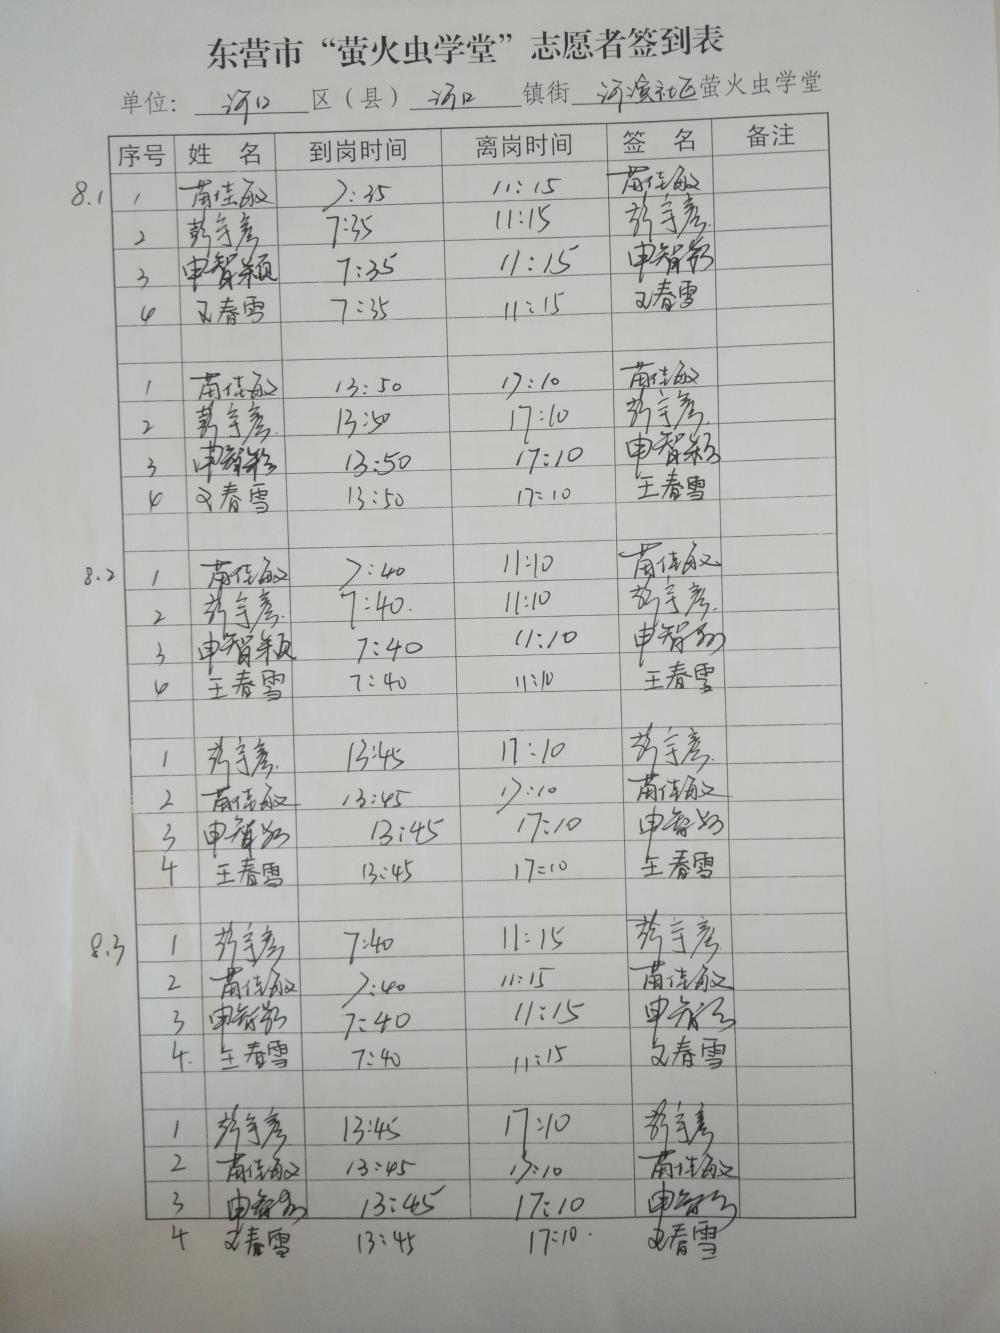 东营市“萤火虫学堂”志愿者签到表
单位: 河口 区（县） 河口 镇街 河滨社区萤火虫学堂
序号 姓 名 到岗时间 离岗时间 签 名 备注
8.1 1 苗佳敏 7:35 11:15 苗佳敏
2 彭宇彦 7:35 11:15 彭宇彦
3 申智颖 7:35 11:15 申智颖
4 王春雪 7:35 11:15 王春雪
1 苗佳敏 13:50 17:10 苗佳敏
2 彭宇彦 13:50 17:10 彭宇彦
3 申智颖 13:50 17:10 申智颖
4 王春雪 13:50 17:10 王春雪
8.2 1 苗佳敏 7:40 11:10 苗佳敏
2 彭宇彦 7:40. 11:10 彭宇彦
3 申智颖 7:40 11:10 申智颖
4 王春雪 7:40 11:10 王春雪
1 彭宇彦 13:45 17:10 彭宇彦
2 苗佳敏 13:45 17:10 苗佳敏
3 申智颖 13:45 17:10 申智颖
4 王春雪 13:45 17:10 王春雪
8.3 1 彭宇彦 7:40 11:15 彭宇彦
2 苗佳敏 7:40 11:15 苗佳敏
3 申智颖 7:40 11:15 申智颖
4. 王春雪 7:40 11:15 王春雪
1 彭宇彦 13:45 17:10 彭宇彦
2 苗佳敏 13:45 17:10 苗佳敏
3 申智颖 13:45 17:10 申智颖
4 王春雪 13:45 17:10. 王春雪